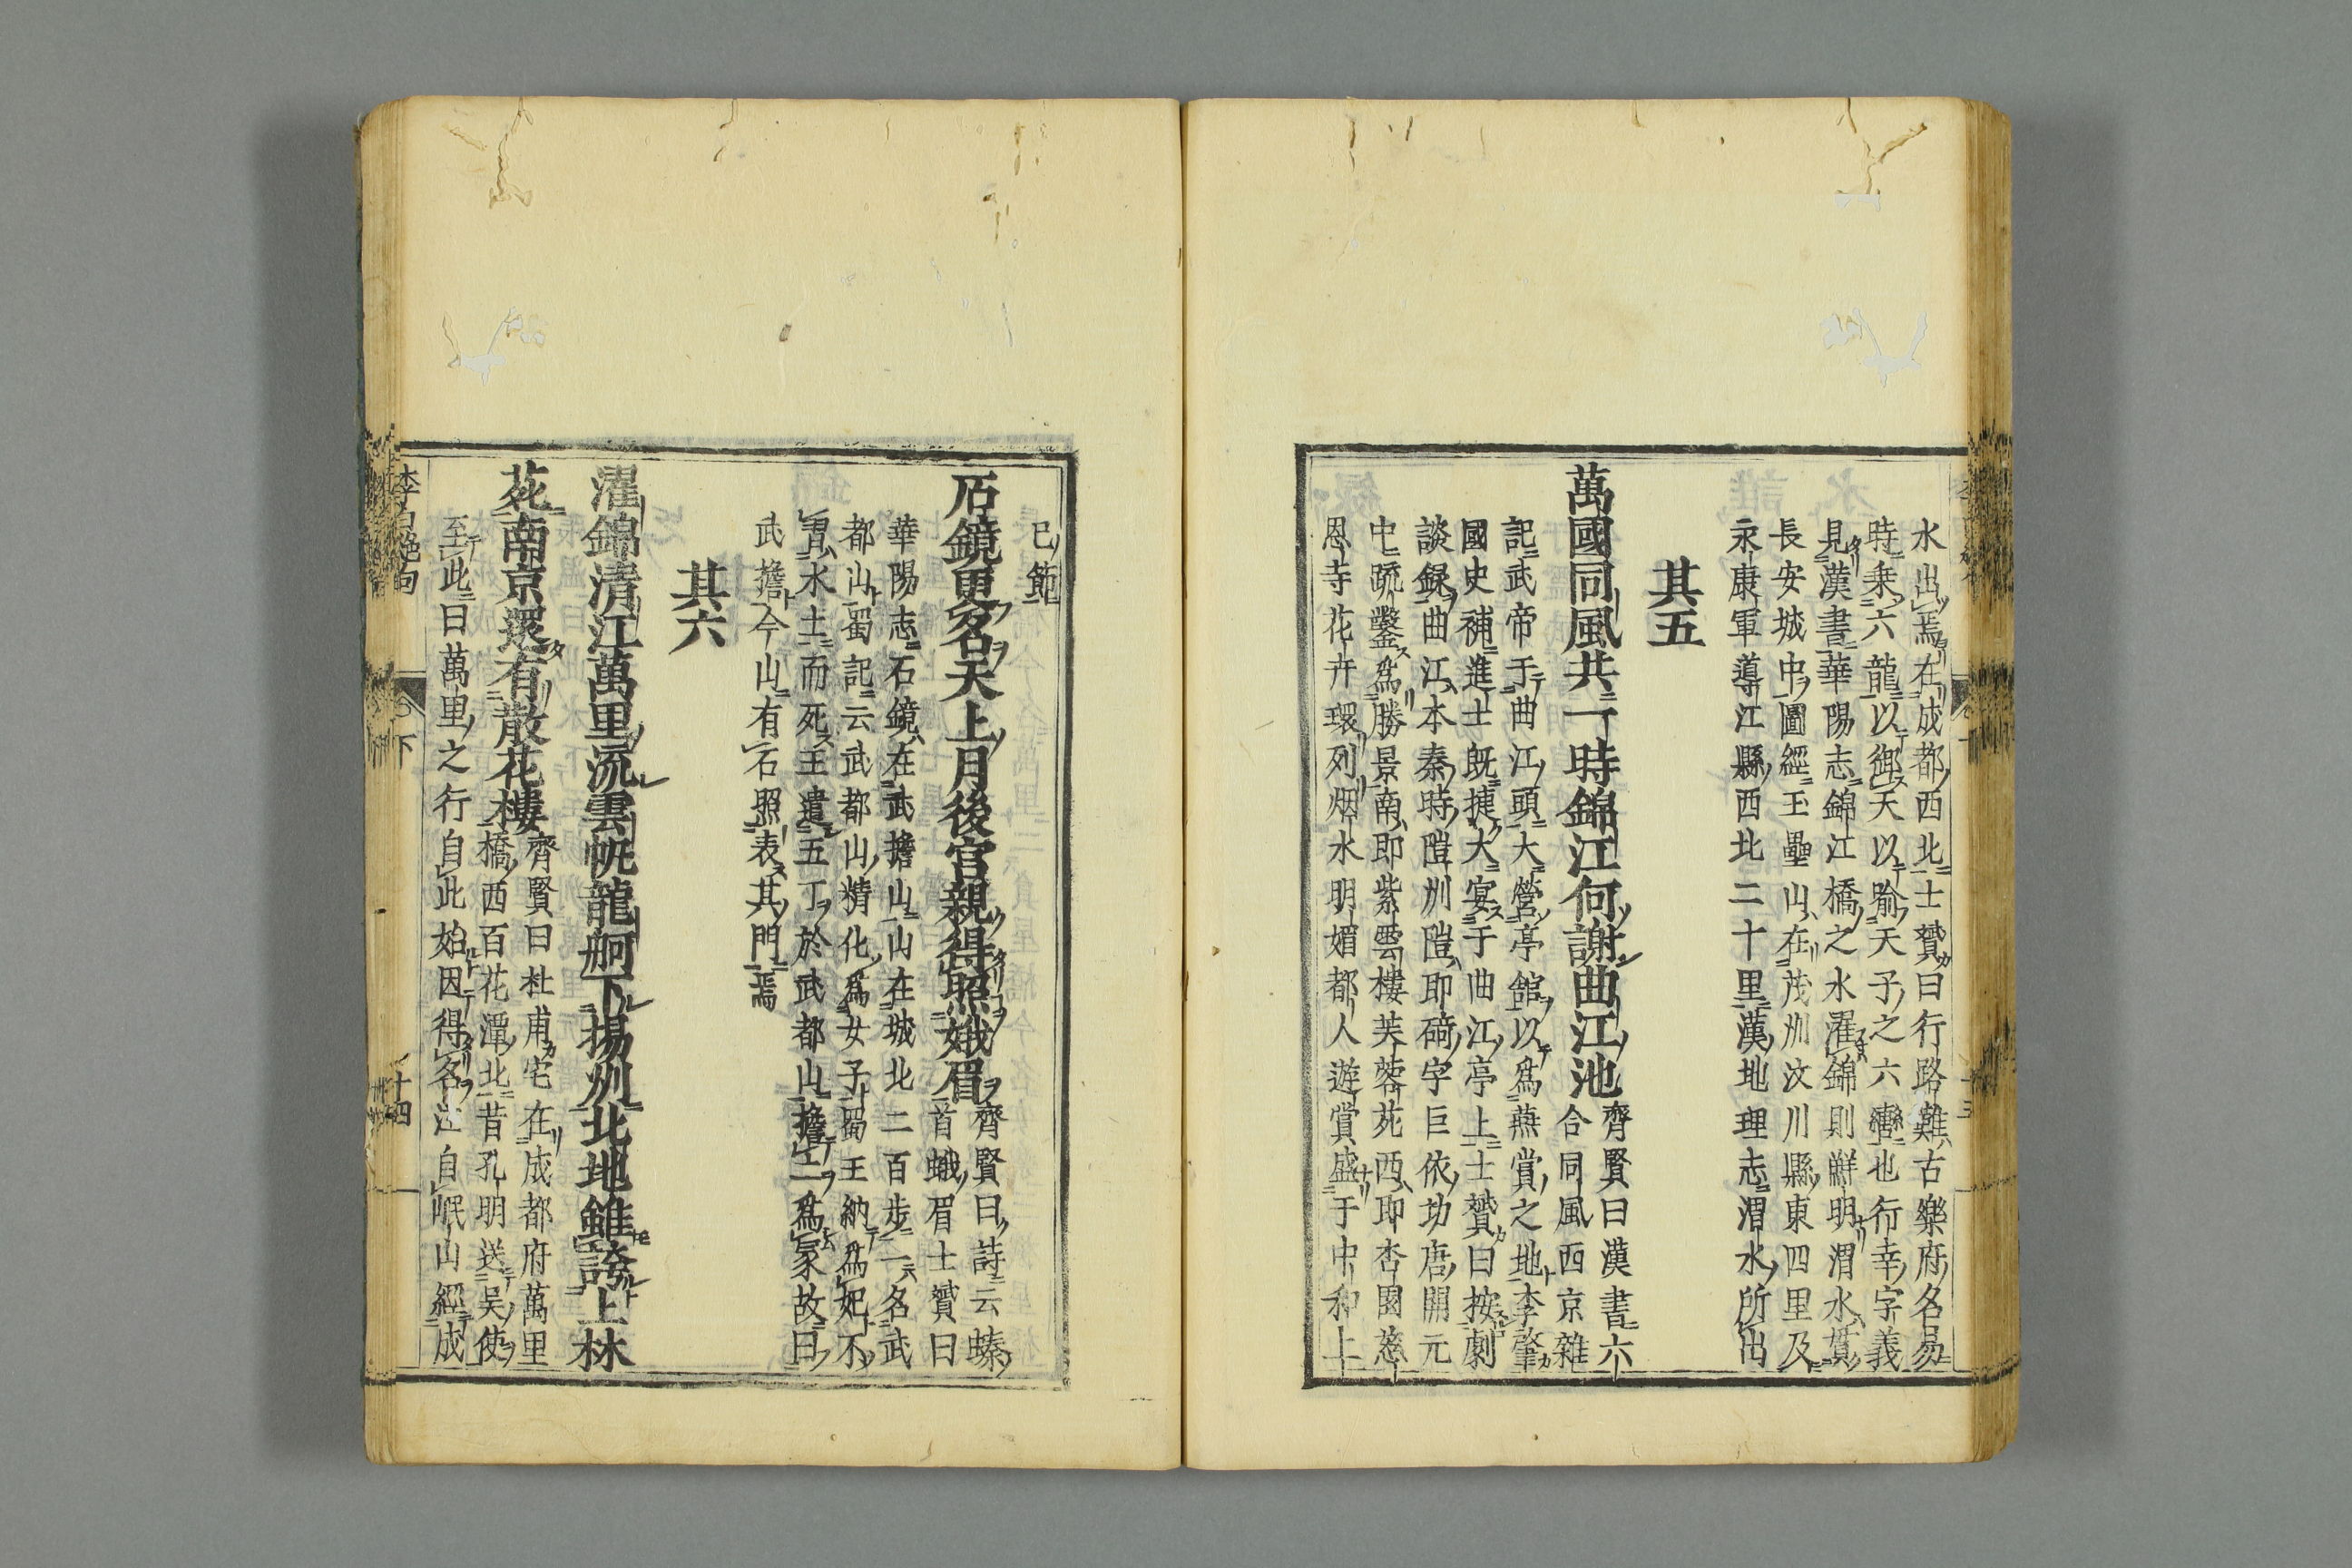 水出焉在成都西北士贇曰行路難古樂府名易
時乗六龍以御天以喩天子之六轡也行幸字義
見漢書華陽志錦江橋之水濯錦則鮮明渭水貫
長安城中圖經玉壘山在茂州汶川縣東四里及
永康軍導江縣西北二十里漢地理志渭水所出
其五
萬國同風共一時錦江何謝曲江池
齊賢曰漢書六
合同風西京雜
記武帝于曲江頭大營亭館以爲燕賞之地李肇
國史補進士既捷大宴于曲江亭上士贇曰按劇
談録曲江本秦時隑州隑即碕字巨依功唐開元
中疏鑿爲勝景南即紫雲樓芙蓉苑西即杏園慈
恩寺花卉環列烟水明媚都人遊賞盛于中和上
巳節
石鏡更名天上月後宮親得照娥眉
齊賢曰詩云螓
首蛾眉士贇曰
華陽志石鏡在武擔山山在城北二百步一名武
都山蜀記云武都山精化爲女子蜀王納爲妃不
習水土而死王遣五丁於武都山擔土爲冢故曰
武擔今山有石照表其門焉
其六
濯錦清江萬里流雲帆龍舸下揚州北地雖誇上林
苑南京還有散花樓
齊賢曰杜甫宅在成都府萬里
橋西百花潭北昔孔明送吳使
至此曰萬里之行自此始因得名注自岷山經成
李白絶句
下
十四